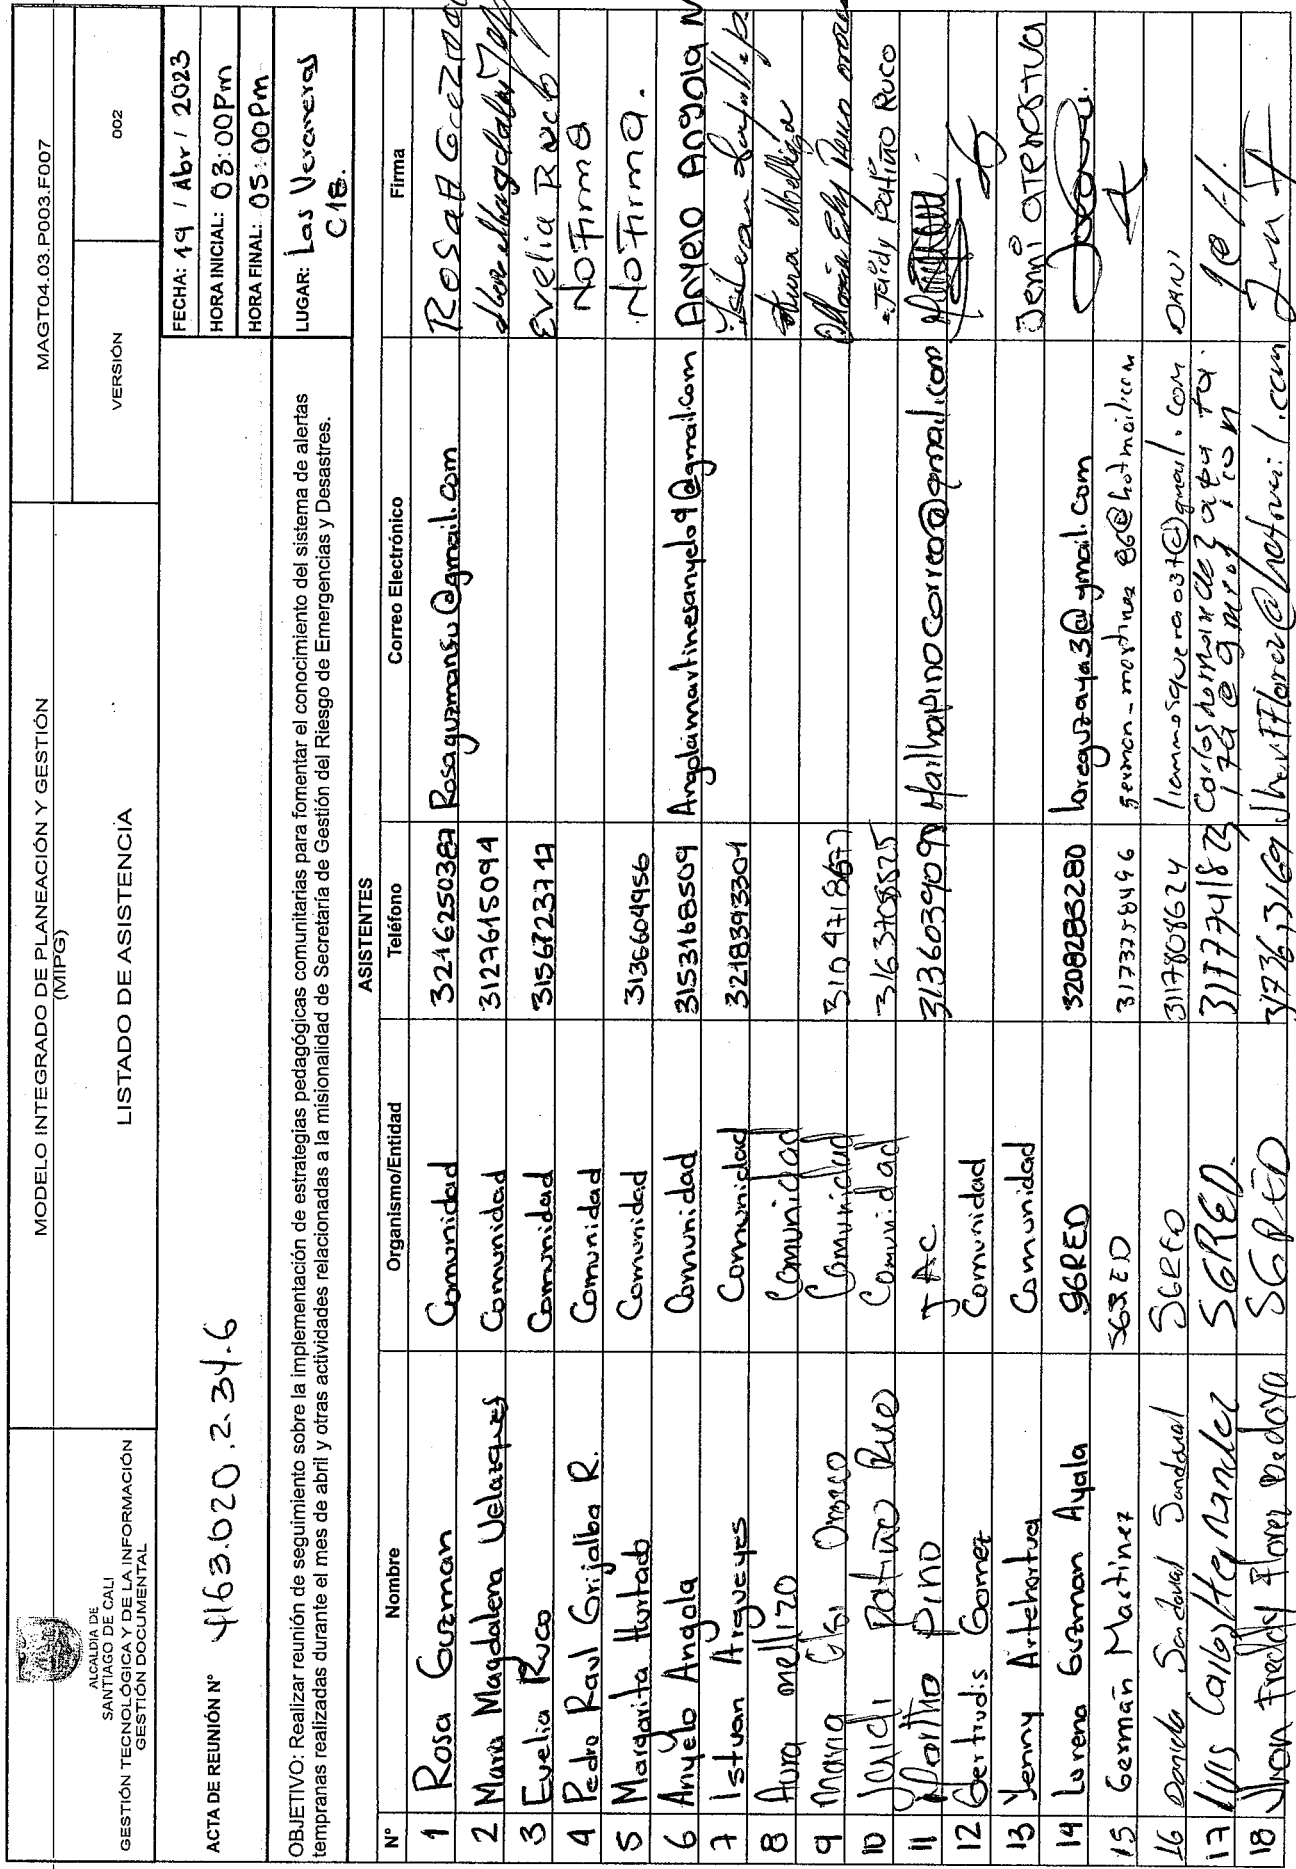 ALCALDIA DE
SANTIAGO DE CALI
GESTIÓN TECNOLÓGICA Y DE LA INFORMACIÓN
GESTIÓN DOCUMENTAL
MODELO INTEGRADO DE PLANEACIÓN Y GESTIÓN
(MIPG)
LISTADO DE ASISTENCIA
MAGT04.03.P003.F007
VERSIÓN 002
ACTA DE REUNIÓN N° 4163.020.2.34.6
FECHA: 19 / Abr / 2023
HORA INICIAL: 03:00Pm
HORA FINAL: 05:00Pm
OBJETIVO: Realizar reunión de seguimiento sobre la implementación de estrategias pedagógicas comunitarias para fomentar el conocimiento del sistema de alertas
tempranas realizadas durante el mes de abril y otras actividades relacionadas a la misionalidad de Secretaría de Gestión del Riesgo de Emergencias y Desastres.
LUGAR: Las Veraneras
C18.
ASISTENTES
N° Nombre Organismo/Entidad Teléfono Correo Electrónico Firma
1 Rosa Guzman Comunidad 3216250387 Rosaguzmansu@gmail.com Rosa
2 Maria Magdalena Velazques Comunidad 3127615094 Magdalena
3 Evelia Ruco Comunidad 3156723717 Evelia Ruco
4 Pedro Raul Grijalba R. Comunidad No Firma
5 Margarita Hurtado Comunidad 3136604956 No Firma.
6 Anyelo Angola Comunidad 3153168509 Angolamartinesanyelo9@gmail.com Anyelo Angola
7 Istuan Argueyes Comunidad 3218393301
8 Aura mellizo Comunidad Aura Mellizo
9 Maria Elsi Orozco Comunidad 3104718677 Maria
10 Jeidi Patiño Ruco Comunidad 3163708525 Jeidy Patiño Ruco
11 Marlho Pino JAC 3136039090 Mailhapinocorreo@gmail.com
12 Gertrudis Gomez Comunidad
13 Yenny Artehortua Comunidad Jenni atehortua
14 Lorena Guzman Ayala SGRED 3208283280 loreguzaya3@gmail.com
15 Germán Martinez SGRED 3173758496 german_martinez86@hotmail.com
16 Daniela Sandoval Sandoval SGRED 3117808624
17 Luis Carlos Hernandez SGRED. 3117741823
18 Jhon Freddy Florez Bedoya SGRED